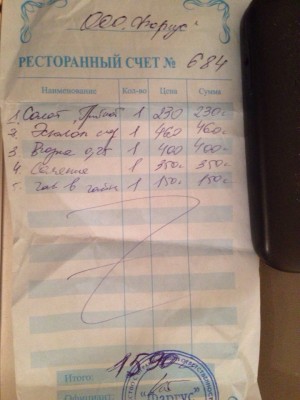 ООО „Фаргус"
РЕСТОРАННЫЙ СЧЕТ № 684
Наименование Кол-во Цена Сумма
1. Салат „ 1 230 230=
2. Эскалоп 1 460 460=
3. Водка 0,25 1 400 400=
4. 1 350= 350=
5. Чай в чайн 1 150= 150=
1590
Итого:
Официант:
"Фаргус"